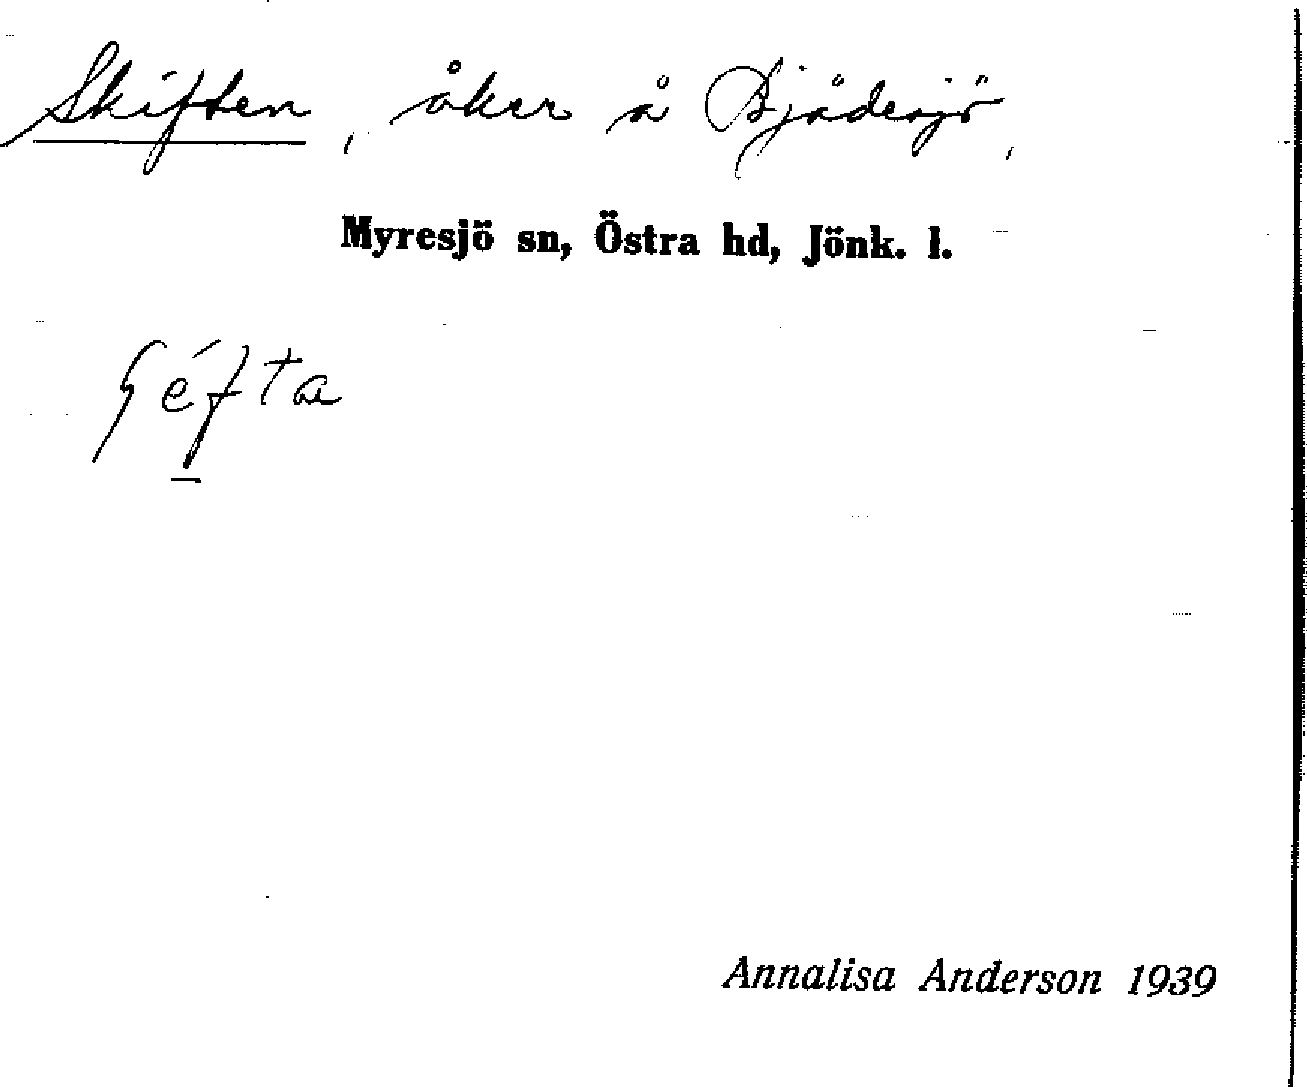 Skiften, åker å Bjädesjö,
Myresjö sn, Östra hd, Jönk. l.
ʃéfta
Annalisa Anderson 1939